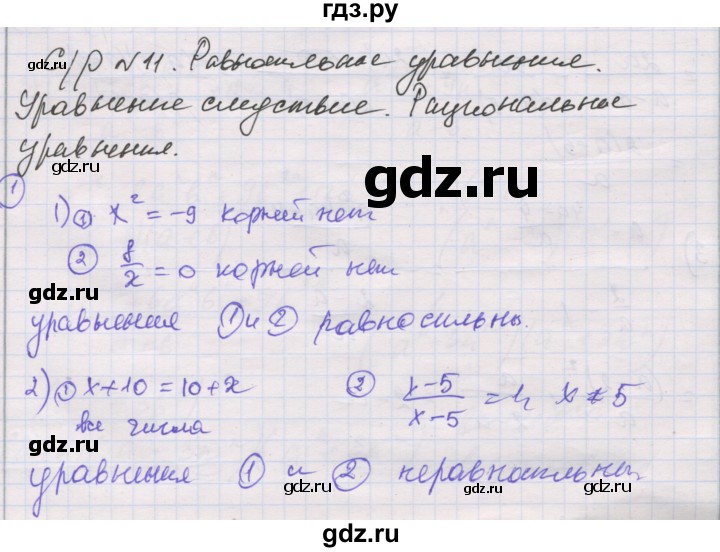 гдз.ру
С/р №11. Равносильное уравнения.
Уравнение следствие. Рациональное
уравнения.
gdz.ru
1
1) ① x² = -9 корней нет
② 8/x = 0 корней нет
gdz.ru
gdz.ru
уравнения ① и ② равносильны.
2) ① x+10 = 10+x
② (x-5)/(x-5) = 1, x ≠ 5
все числа
gdz.ru
gdz.ru
уравнения ① и ② неравносильны
gdz.ru
gdz.ru
gdz.ru